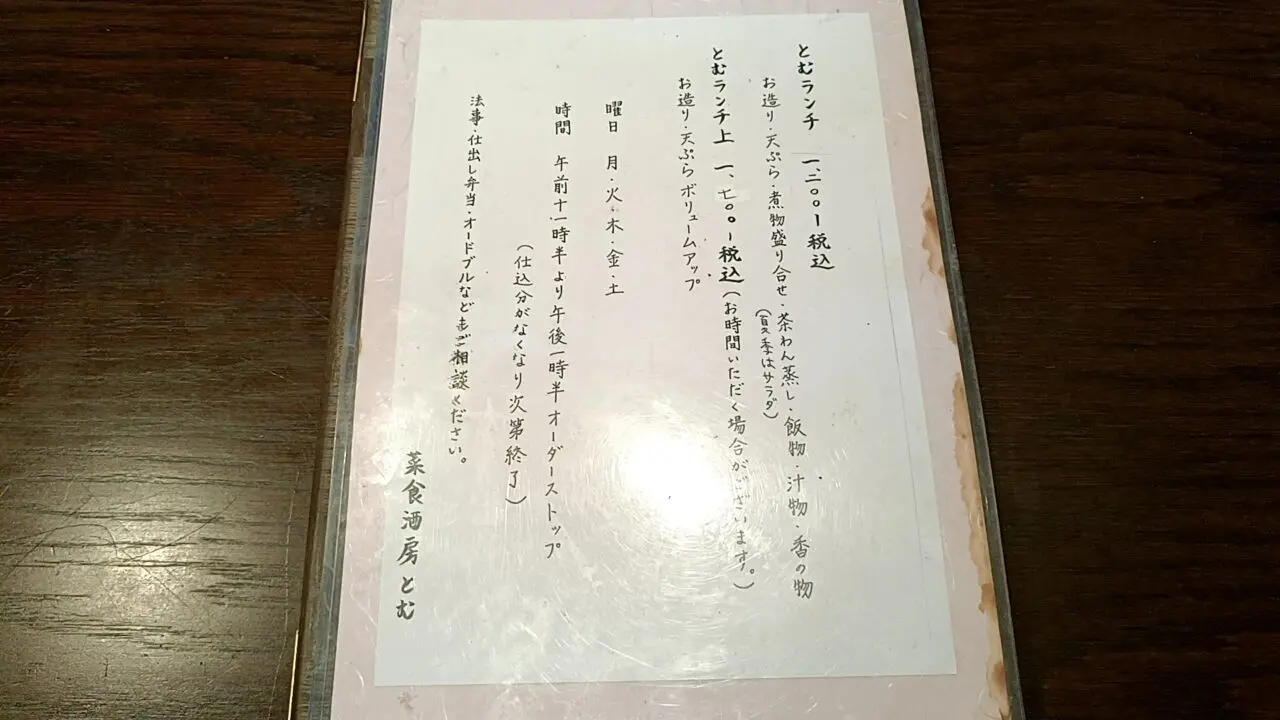 とむランチ 一、二〇〇ー税込
お造り・天ぷら・煮物盛り合せ・茶わん蒸し・飯物・汁物・香の物
(夏季はサラダ)
とむランチ上 一、七〇〇ー税込(お時間いただく場合がございます。)
お造り・天ぷらボリュームアップ
曜日 月・火・木・金・土
時間 午前十一時半より午後一時半オーダーストップ
(仕込分がなくなり次第終了)
法事・仕出し弁当・オードブルなどもご相談ください。
菜食酒房とむ